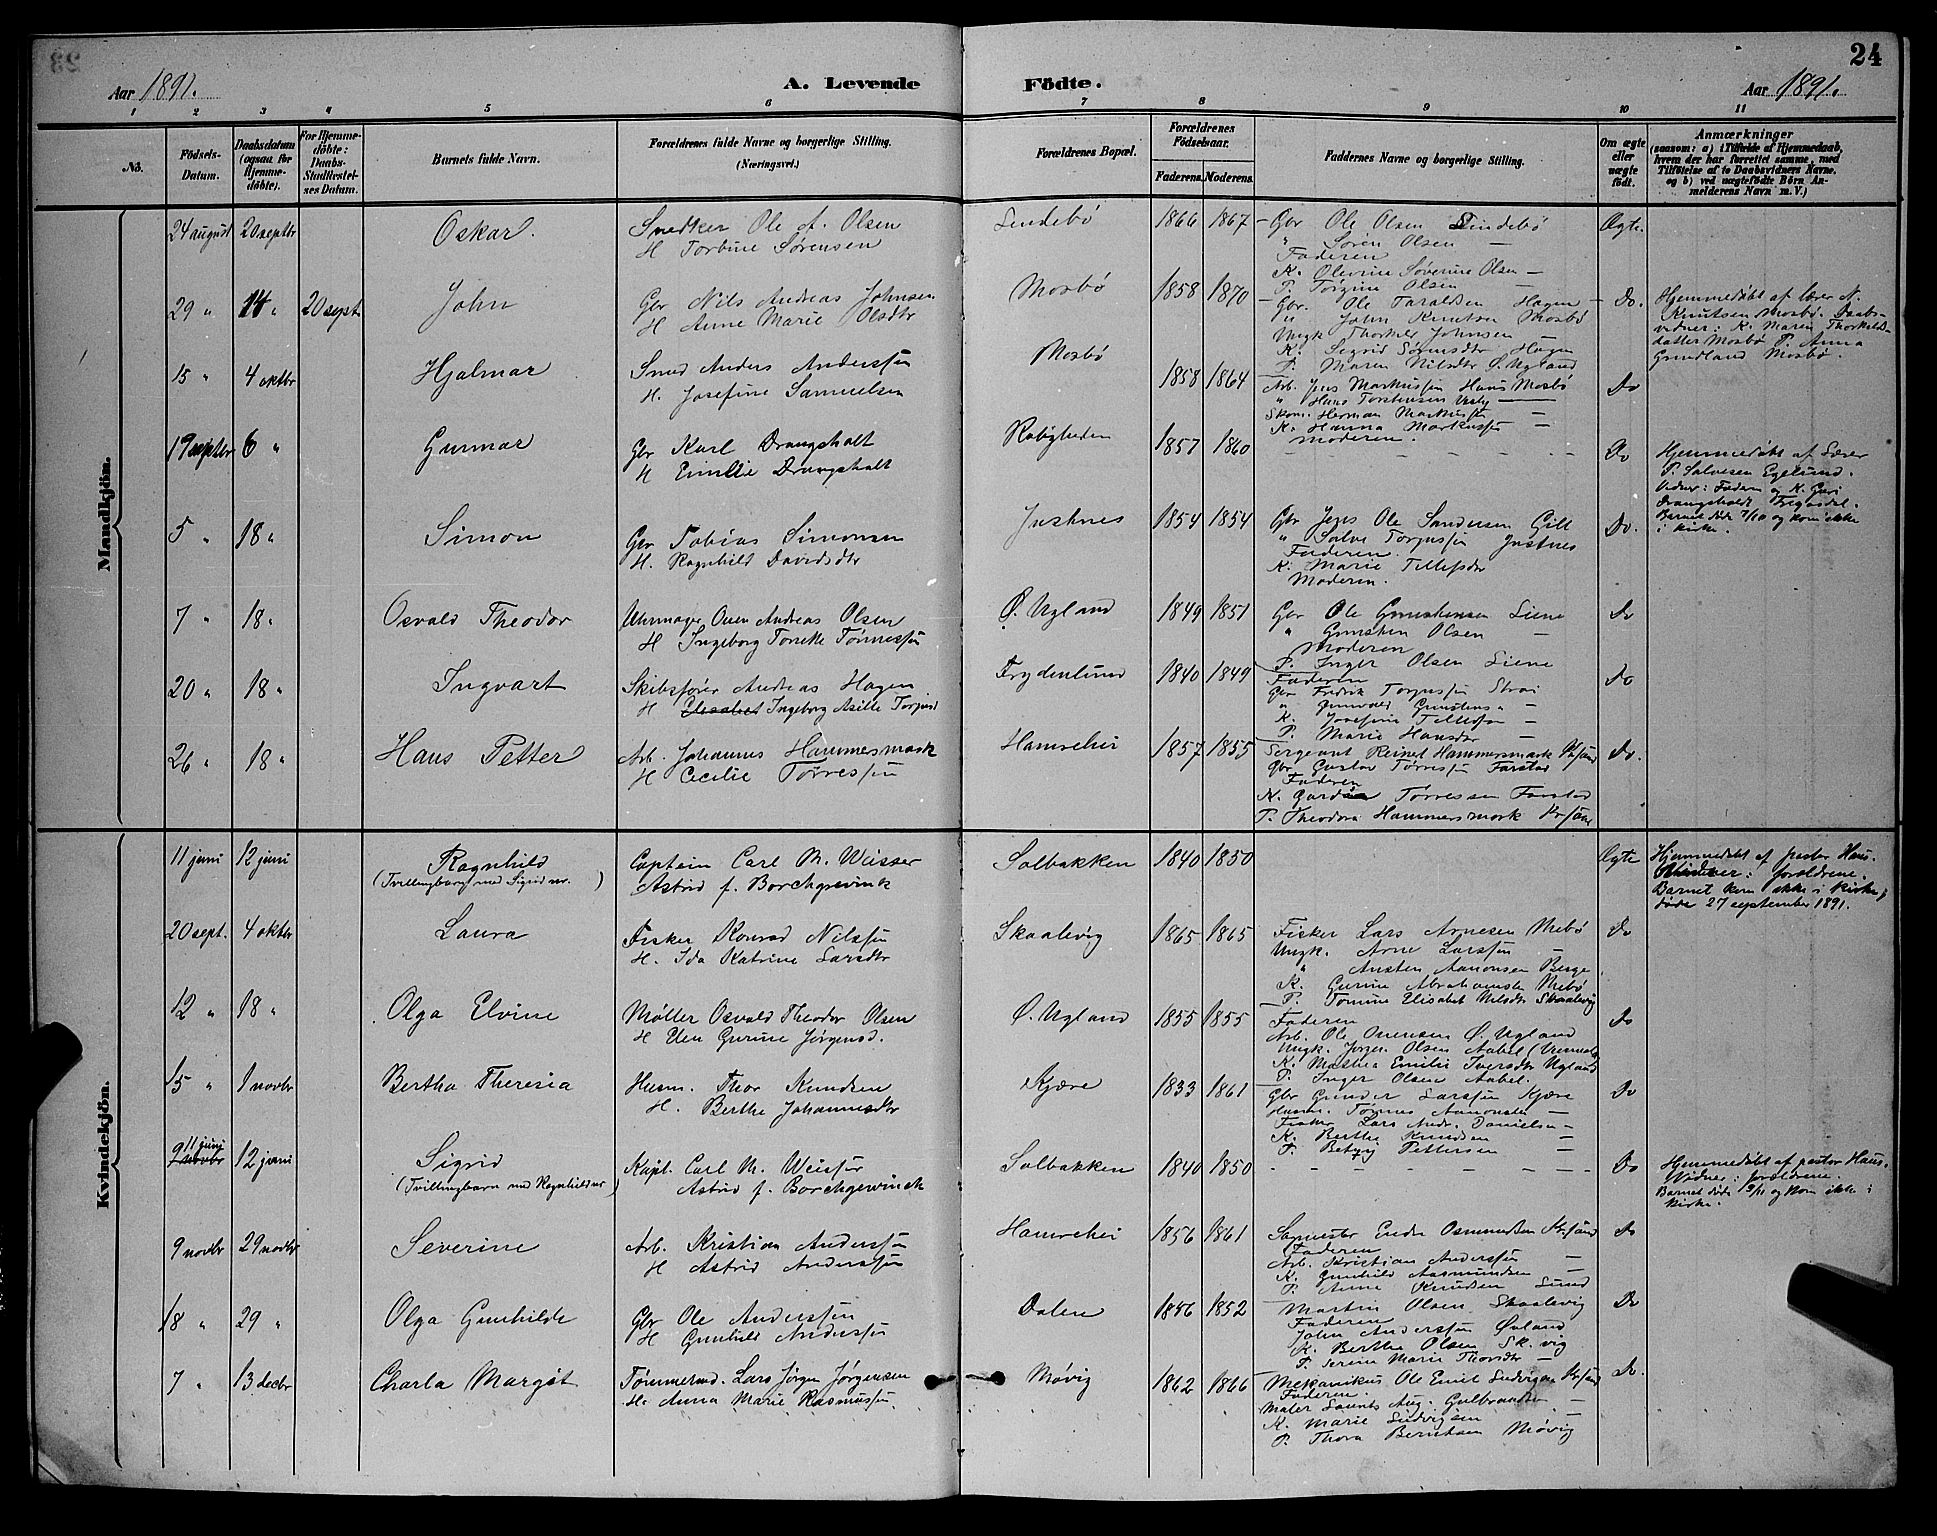 24
Aar 1891.
A. Levende Födte.
Aar 1891.
1 2 3 4 5 6 7 8 9 10 11
No.
Födsels-Datum.
Daabsdatum (ogsaa for Hjemmedöbte).
For Hjemmedöbte: Daabs-Stadfæstelses Datum.
Barnets fulde Navn.
Forældrenes fulde Navne og borgerlige Stilling. (Næringsvei.)
Forældrenes Bopæl.
Forældrenes Födselsaar.
Faderens. Moderens.
Faddernes Navne og borgerlige Stilling.
Om ægte eller uægte födt.
Anmærkninger
(saasom: a) i Tilfælde af Hjemmedaab, hvem der har forrettet samme, med Tilföielse af to Daabsvidners Navne, og b) ved uægtefödte Börn Anmelderens Navn m. V.)
Mandkjön.
24 august 20 septbr Oskar. Snedker Ole A. Olsen
H. Torbine Sørensen
Lindebö 1866 1867 Gbr Ole Olsen Lindebö Ægte.
" Søren Olsen —
Faderen
K. Olevine Søverine Olsen —
P. Torgine Olsen —
29 " 14 " 20 sept John Gbr Nils Andreas Johnsen
H Anne Marie Olsdtr
Mosbö 1858 1870 Gbr. Ole Taraldsen Hagen Do.
" John Knutsen Mosbö
Ungk Thorkel Johnsen —
K. Sigrid Sørensdtr Hagen
P. Maren Nilsdtr Ø. Ugland
Hjemmedøbt af lærer N.
Knutsen Mosbö. Daabs-
vidner: K. Maren Thorkelds-
datter Mosbö P. Anna
Grundland Mosbö.
15 " 4 oktbr Hjalmar Smed Anders Anderssen
H. Josefine Samuelsen
Mosbö 1858 1864 Arb. Jens Markussen Haus Mosbö Do
" Hans Torstensen —
Skom. Herman Markussen —
K. Hanna Markussen —
Moderen.
19 septbr 6 " Gunnar Gbr Karl Drangsholt
H Emilie Drangsholt
Roligheden 1857 1860 — — — Do
Hjemmedøbt af Lærer
P. Salvesen Egelund.
Vidner: Faderen og K. Guri
Drangsholt
Barnet døde 7/10 og kom ikke
i kirke.
5 " 18 " Simon Gbr Tobias Simonsen
H. Ragnhild Davidsdtr
Justnes 1854 1854 Gbr Jens Ole Sandersen Gill Do.
" Salve Torjussen Justnes
Faderen.
K. Marie Tellefsdtr
Moderen.
7 " 18 " Osvald Theodor Uhrmager Oven Andreas Olsen
H Ingeborg Torette Tønnessen
Ø. Ugland 1849 1851 Gbr Ole Gunstensen Liene Do
" Gunsten Olsen —
Moderen
P. Inger Olsen Liene
20 " 18 " Ingvart Skibsfører Andreas Hagen
H Elisabet Ingeborg Asille Torjusd
Frydenlund 1840 1849 Faderen Do
Gbr Fredrik Torjussen Strai
" Gunvald Gunstens "
K. Josefine Tellefsen —
P. Marie Hansdtr —
26 " 18 " Hans Petter Arb. Johannes Hammesmark
H Cecilie Tørressen
Hamrehei 1857 1855 Sergeant Reinert Hammersmark Kr.sand Do.
Gbr Gustav Tørressen Farstad
Faderen
K. Tørressen Farstad
P. Theodora Hammersmark Kr.sand
Kvindekjön.
11 juni 12 juni Ragnhild
(Tvillingbarn med Sigrid nr. )
Captein Carl M. Weisser
Astrid f. Borchgrevink
Solbakken 1840 1850 Ægte
Hjemmedøbt af pastor Haus.
Vidner: foraldrene.
Barnet kom ikke i kirke,
døde 27 september 1891.
20 sept. 4 oktbr Laura Fisker Konrad Nilssen
H. Ida Katrine Larsdtr
Skaalevig 1865 1865 Fisker Lars Arnesen Mebö Do
Ungk. Arne Larssen —
" Austen Aanonsen Berge
K. Gurine Abrahamsen Mebö
P. Tomine Elisabet Nilsdtr Skaalevig
12 " 18 " Olga Elvine Møller Osvald Theodor Olsen
H Gurine Jørgensd.
Ø. Ugland 1855 1855 Faderen Do
Arb. Ole Ø. Ugland
Ungk. Jørgen Olsen Aabel
K. Mathea Emilie Iversdtr Ugland
P. Inger Olsen Aabel.
15 " 1 novbr Bertha Theresia Husm. Thor Knudsen
H. Berthe Johannesdtr
Kjære 1833 1861 Gbr Gunder Larssen Kjære Do
Husm. Tønnes Aanonsen —
Fisker Lars Andr. Danielsen —
K. Berthe Knudsen —
P. Betzy Pettersen —
11 juni
9 novbr 12 juni Sigrid
(Tvillingbarn med Ragnhild nr )
Kapt. Carl M. Weisser
Astrid f. Borchgrevinck
Solbakken 1840 1850 — — — Do
Hjemmedøbt af pastor Haus.
Vidner: foraldrene.
Barnet døde 9/11 og kom ikke i
kirke.
9 novbr 29 novbr Severine Arb. Kristian Anderssen
H Astrid Anderssen
Hamrehei 1856 1861 Endre Osmundsen Kr.sand Do
Faderen
Arb. Kristian Anderssen —
K. Gunhild Aasmundsen —
P. Anne Knudsen Lund
18 " 29 " Olga Gunhilde Gbr Ole Anderssen
H Gunhild Anderssen
Dalene 1856 1852 Martin Olsen Skaalevig Do
Faderen
John Anderssen Øvland
K. Berthe Olsen Sk.vig
P. Serine Marie Thorsdtr —
7 " 13 decbr Charla Margøt Tømmermd. Lars Jørgen Jørgensen
H. Anna Marie Rasmussen
Møvig 1862 1866 Mekanikus Ole Emil Ludvigsen Kr.sand Do.
Faderen.
Maler Laurits Aug. Gulbrandsen —
K. Marie Ludvigsen —
P. Thora Berntsen Møvig